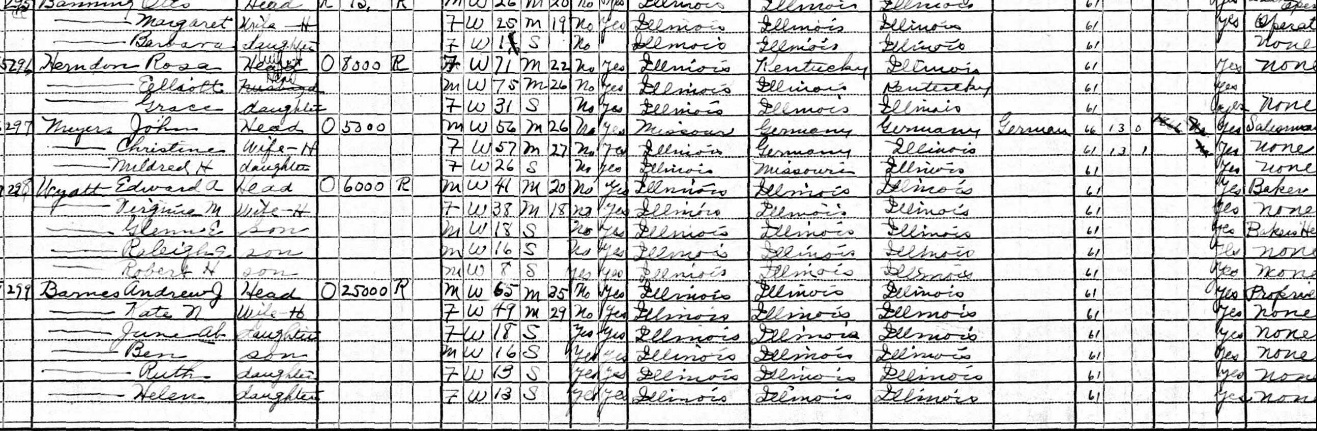 295 Banning Otto Head R 15. R M W 26 M 20 No Yes Illinois Illinois Illinois 61 Yes
Margaret Wife-H F W 25 M 19 No Yes Illinois Illinois Illinois 61 Yes Operat
Barbara daughter F W 1 S No Illinois Illinois Illinois 61 None
5296 Herndon Rosa O 8000 R F W 71 M 22 No Yes Illinois Kentucky Illinois 61 Yes None
Elliott Head M W 75 M 26 No Yes Illinois Illinois Kentucky 61 Yes
Grace daughter F W 31 S No Yes Illinois Illinois Illinois 61 Yes None
297 Meyers John Head O 5000 M W 56 M 26 No Yes Missouri Germany Germany German 66 13 0 Yes Salesman
Christine Wife-H F W 57 M 27 No Yes Illinois Germany Illinois 61 13 1 Yes None
Mildred H daughter F W 26 S No Yes Illinois Missouri Illinois 61 Yes None
298 Wyatt Edward A Head O 6000 R M W 41 M 20 No Yes Illinois Illinois Illinois 61 Yes Baker
Virginia M Wife-H F W 38 M 18 no Yes Illinois Illinois Illinois 61 Yes None
Glenn E son M W 18 S No Yes Illinois Illinois Illinois 61 Yes Bakers He
Raleigh son M W 16 S Yes Illinois Illinois Illinois 61 Yes None
Robert H son M W 8 S Yes Yes Illinois Illinois Illinois 61 Yes None
299 Barnes Andrew J Head O 25000 R M W 65 M 35 No Yes Illinois Illinois Illinois 61 Yes Proprie
Kate N Wife-H F W 49 M 29 No Yes Illinois Illinois Illinois 61 Yes None
June daughter F W 18 S Yes Yes Illinois Illinois Illinois 61 Yes None
Ben son M W 16 S Yes Yes Illinois Illinois Illinois 61 Yes None
Ruth daughter F W 13 S Yes Yes Illinois Illinois Illinois 61 Yes None
Helen daughter F W 13 S Yes Yes Illinois Illinois Illinois 61 Yes None